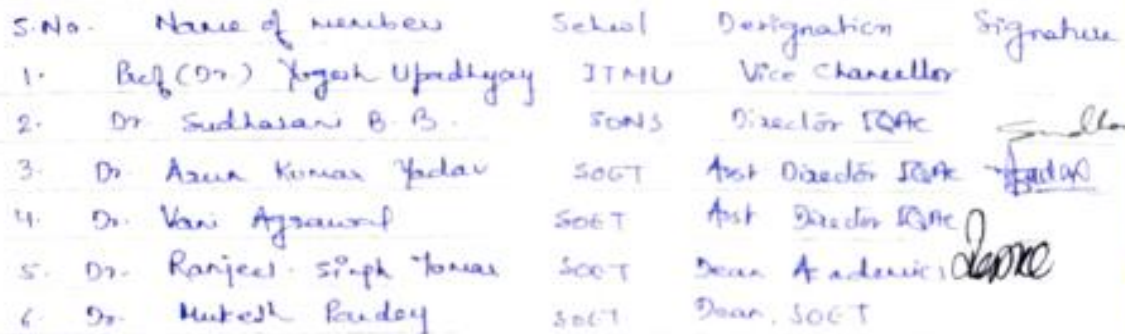 S.No. Name of member School Designation Signature
1. Prof (Dr.) Yogesh Upadhyay ITMU Vice Chancellor
2. Dr. Sudhasani B. B. SONS Director IQAC
3. Dr. Arun Kumar Yadav SOET Asst Director IQAC
4. Dr. Vani Agrawal SOET Asst Director IQAC
5. Dr. Ranjeet Singh Tomar SOET Dean Academics
6. Dr. Mukesh Pandey SOET Dean, SOET